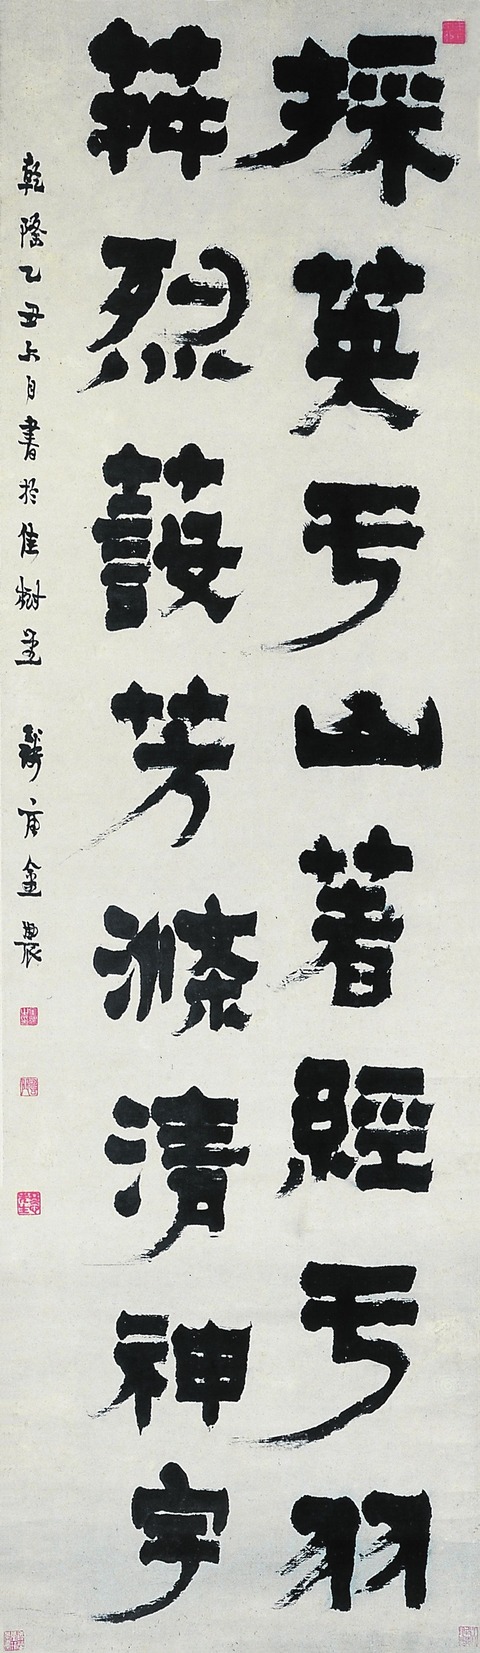 採英亏山著經亏羽
荈烈蔎芳滌清神宇
乾隆乙丑六月書於佳樹堂 錢唐金農